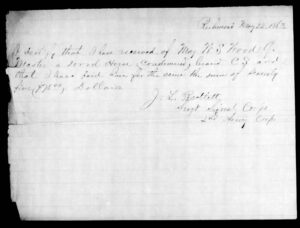 Richmond May 22 1863
I certify that I have received of Maj W. S. Wood
Master a Sorrel Horse (condemned) brand C.S. and
that I have paid him for the same the sum of Seventy
five Dollars
J. L. Bartlett
Sergt Signal Corps
2nd Army Corps